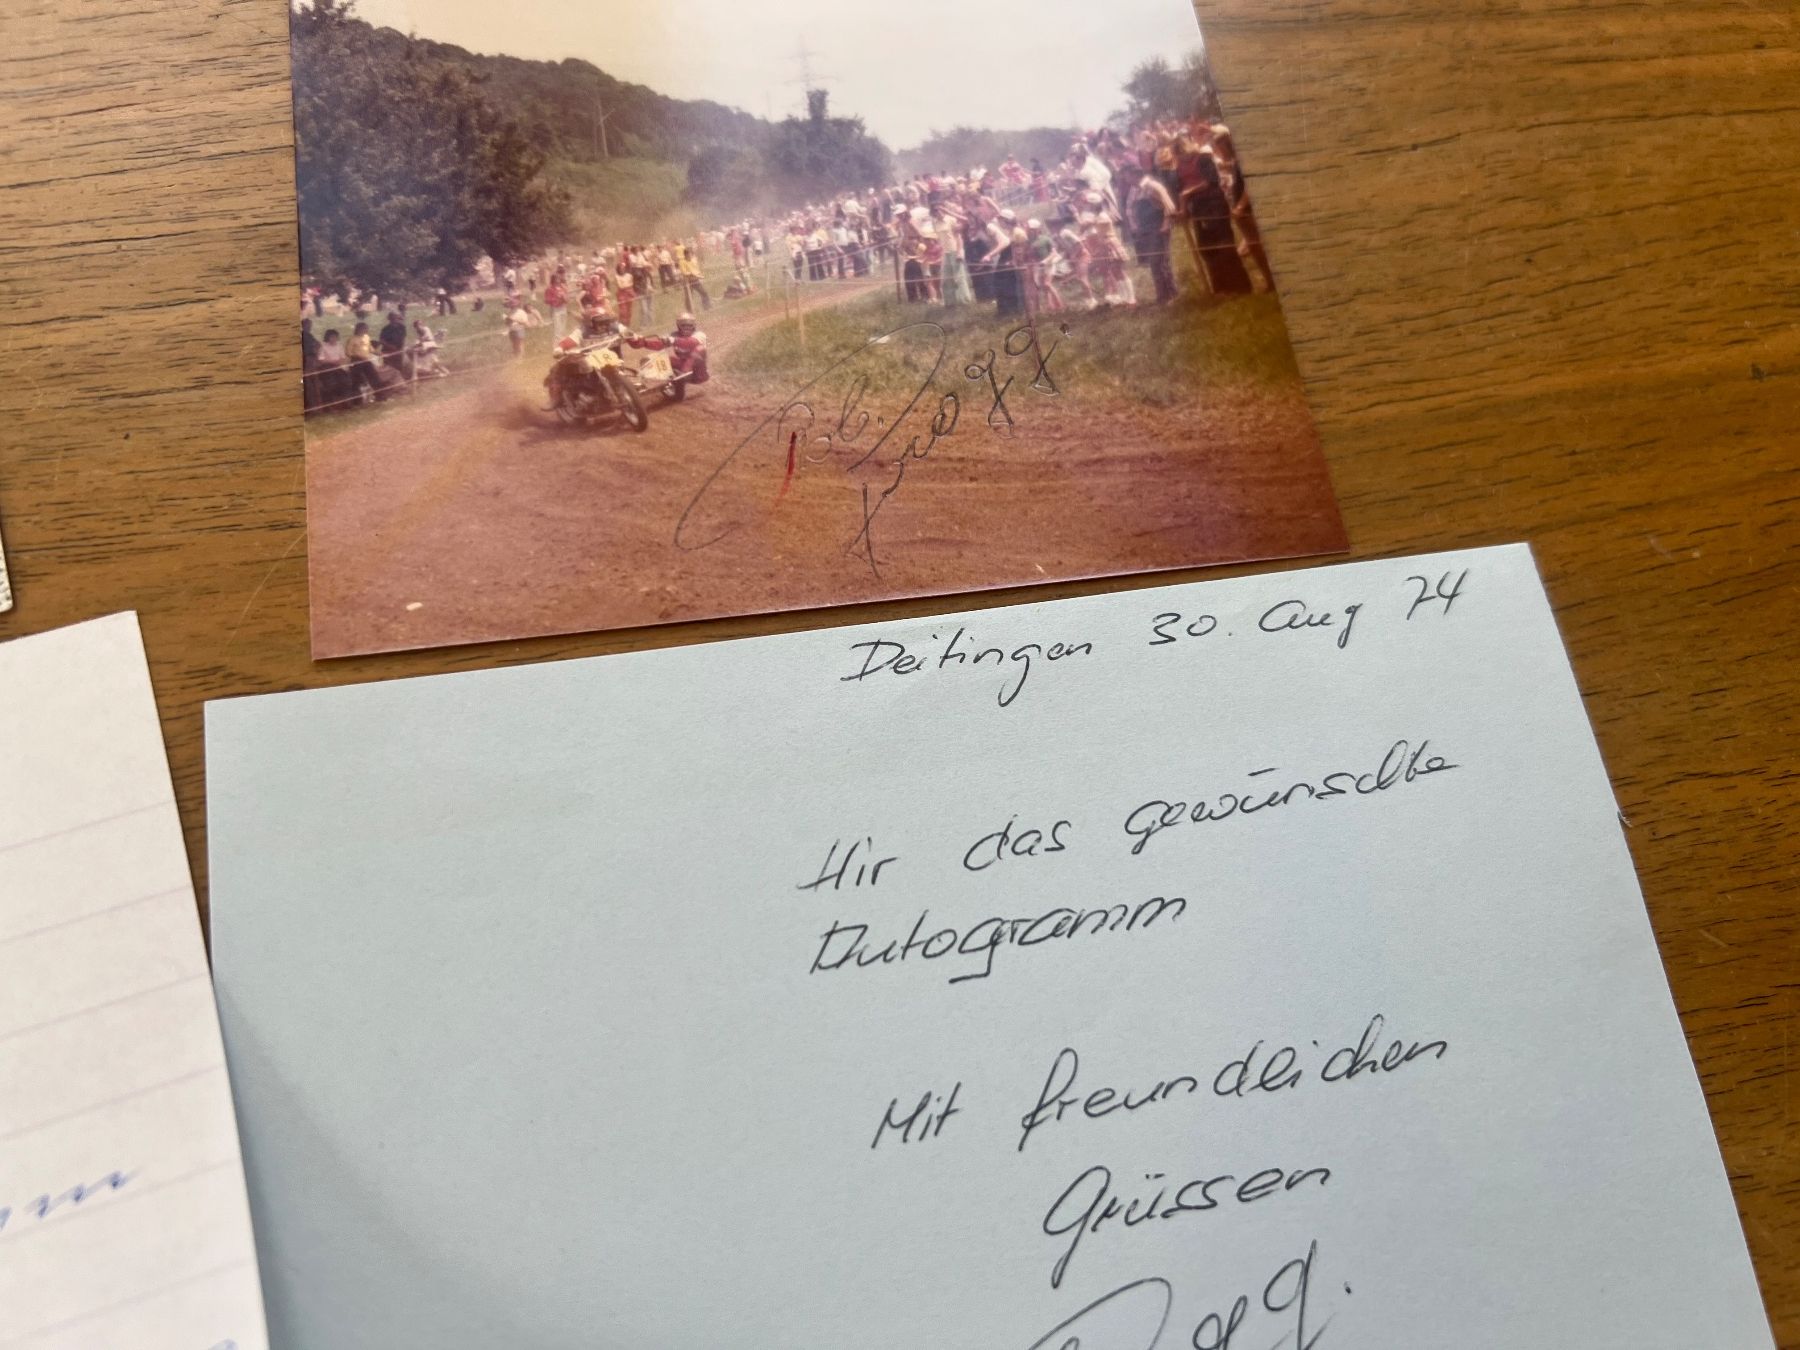 18
18
Rob.
Deitingen 30. Aug 74
Hir das gewünschte
Autogramm
Mit freundlichen
Grüssen